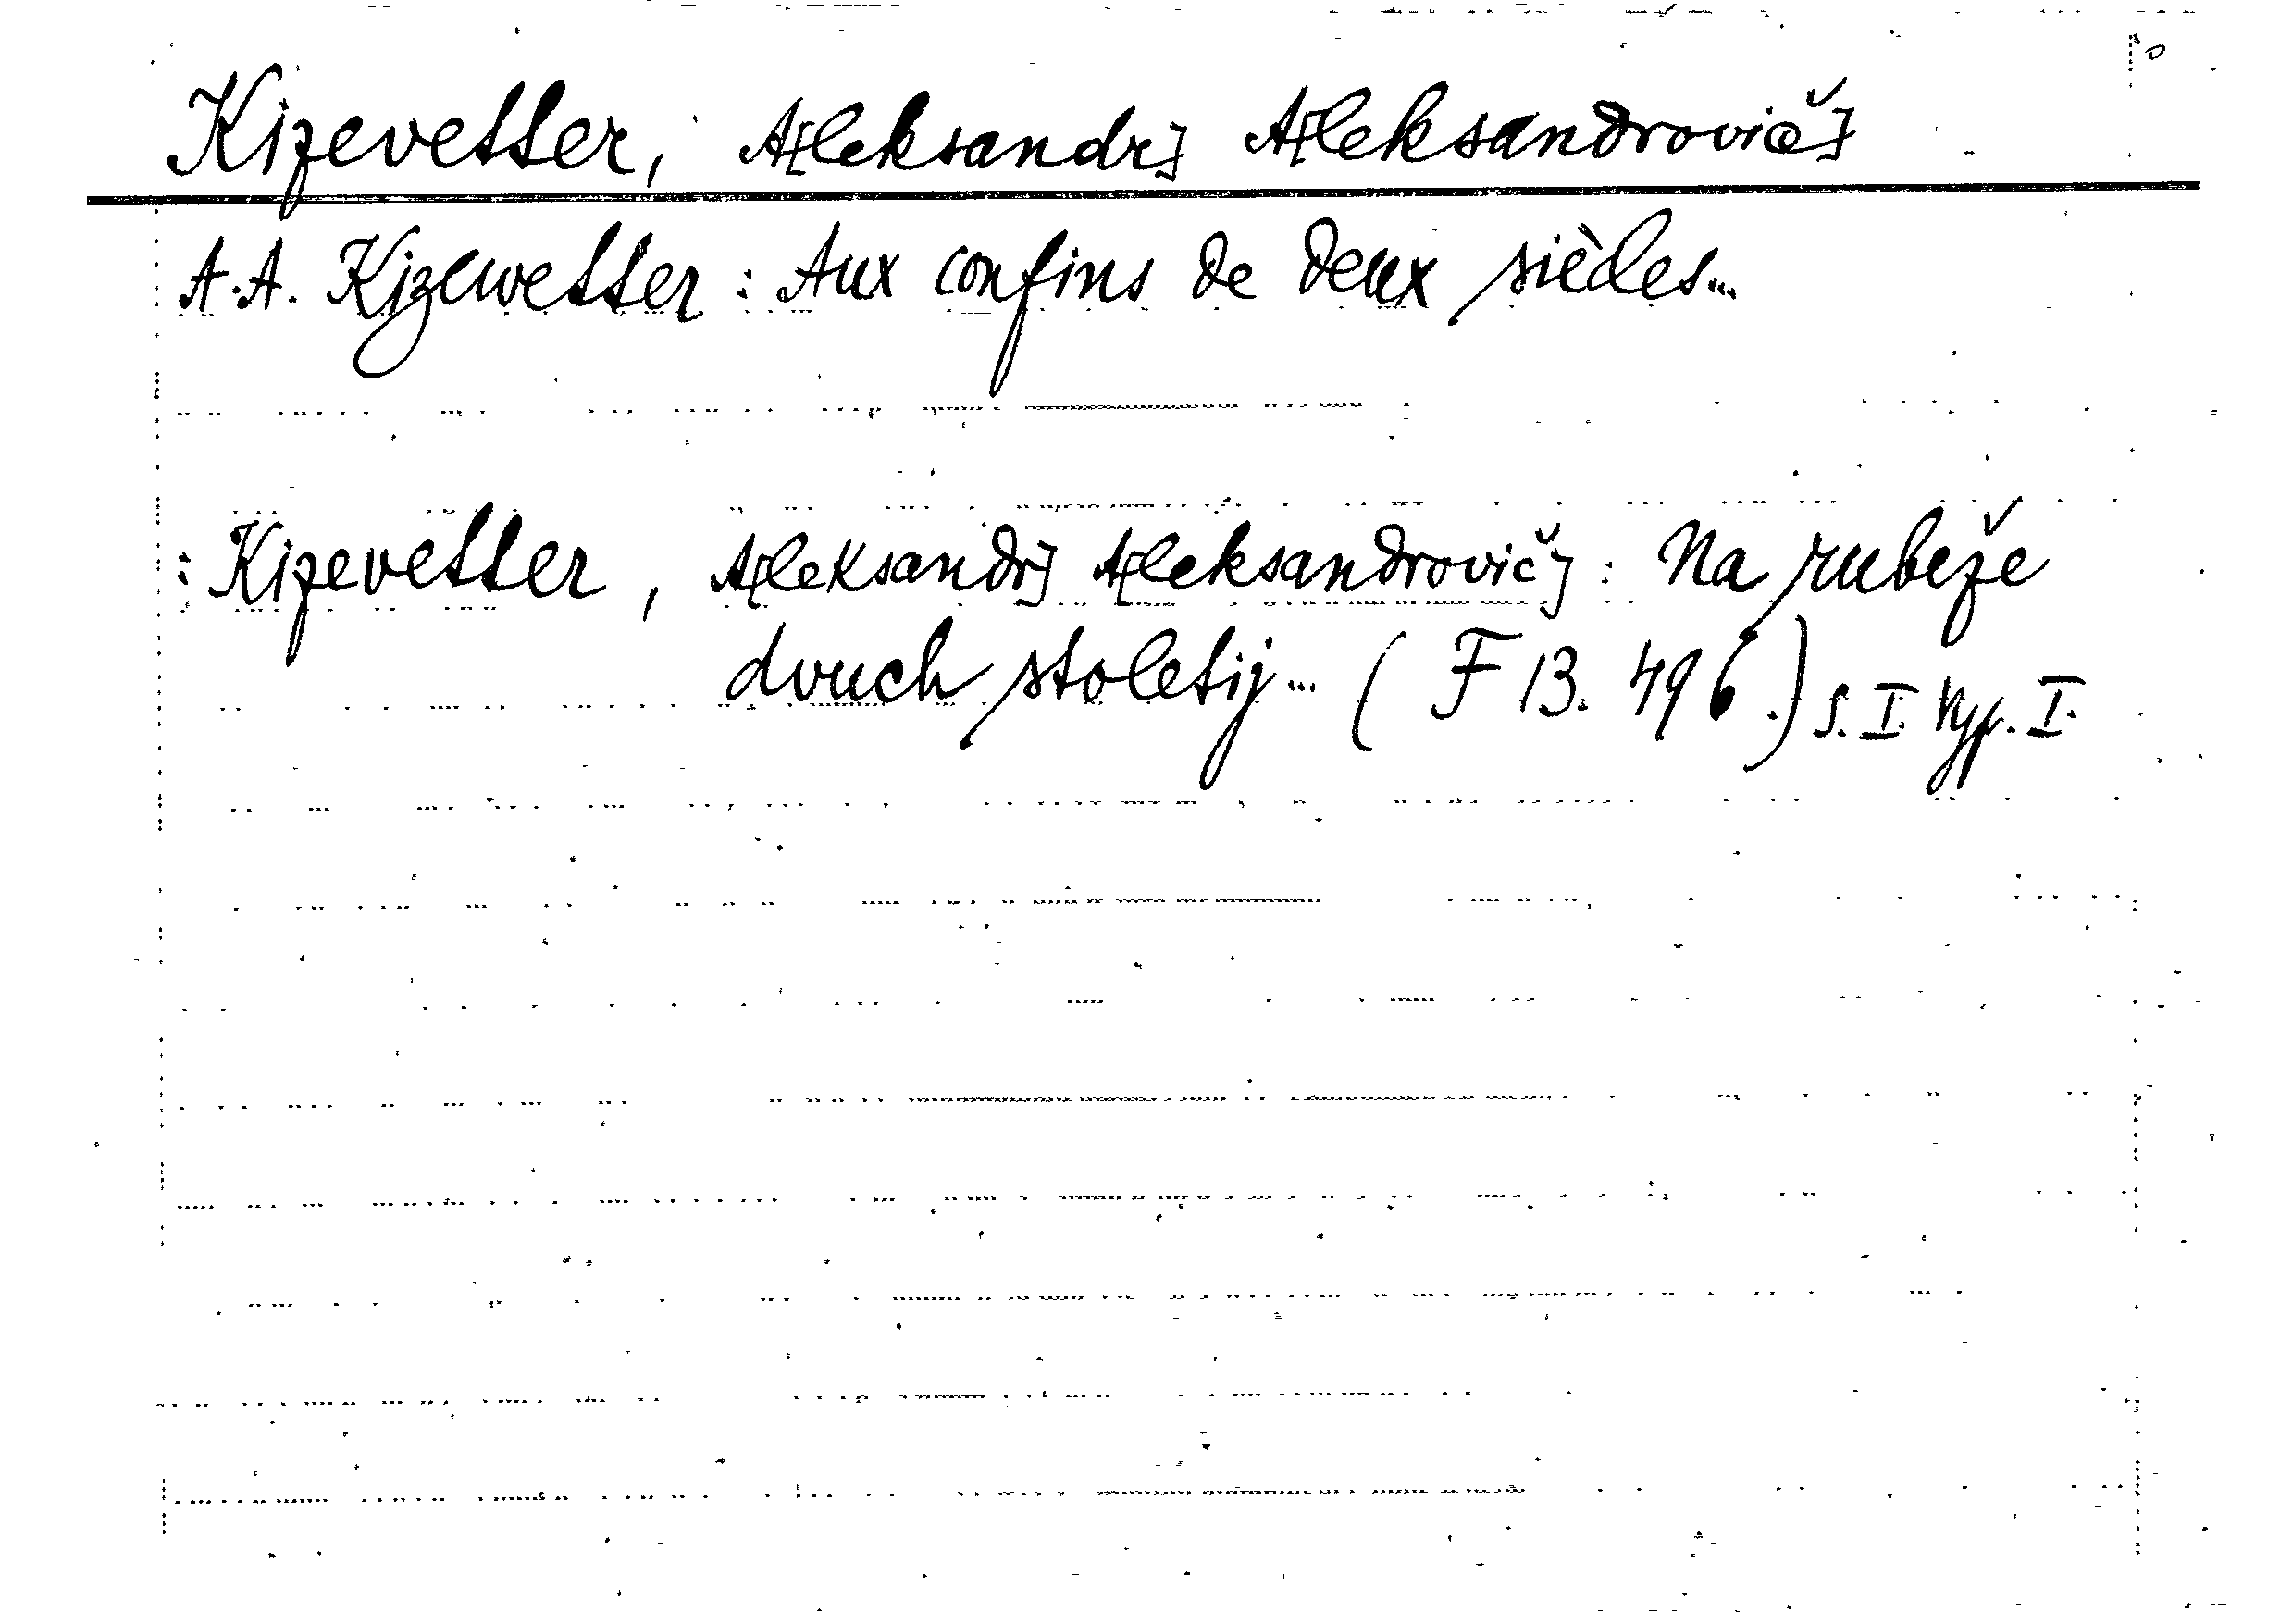 Kizevetter, A[leksandr] A[leksandrovič]
A.A. Kizewetter: Aux confins de deux siècles...
: Kizevetter, A[leksandr] A[leksandrovič]: Na rubeže
dvuch stoletij... (F 13.496.) S.I. Vyp. I.